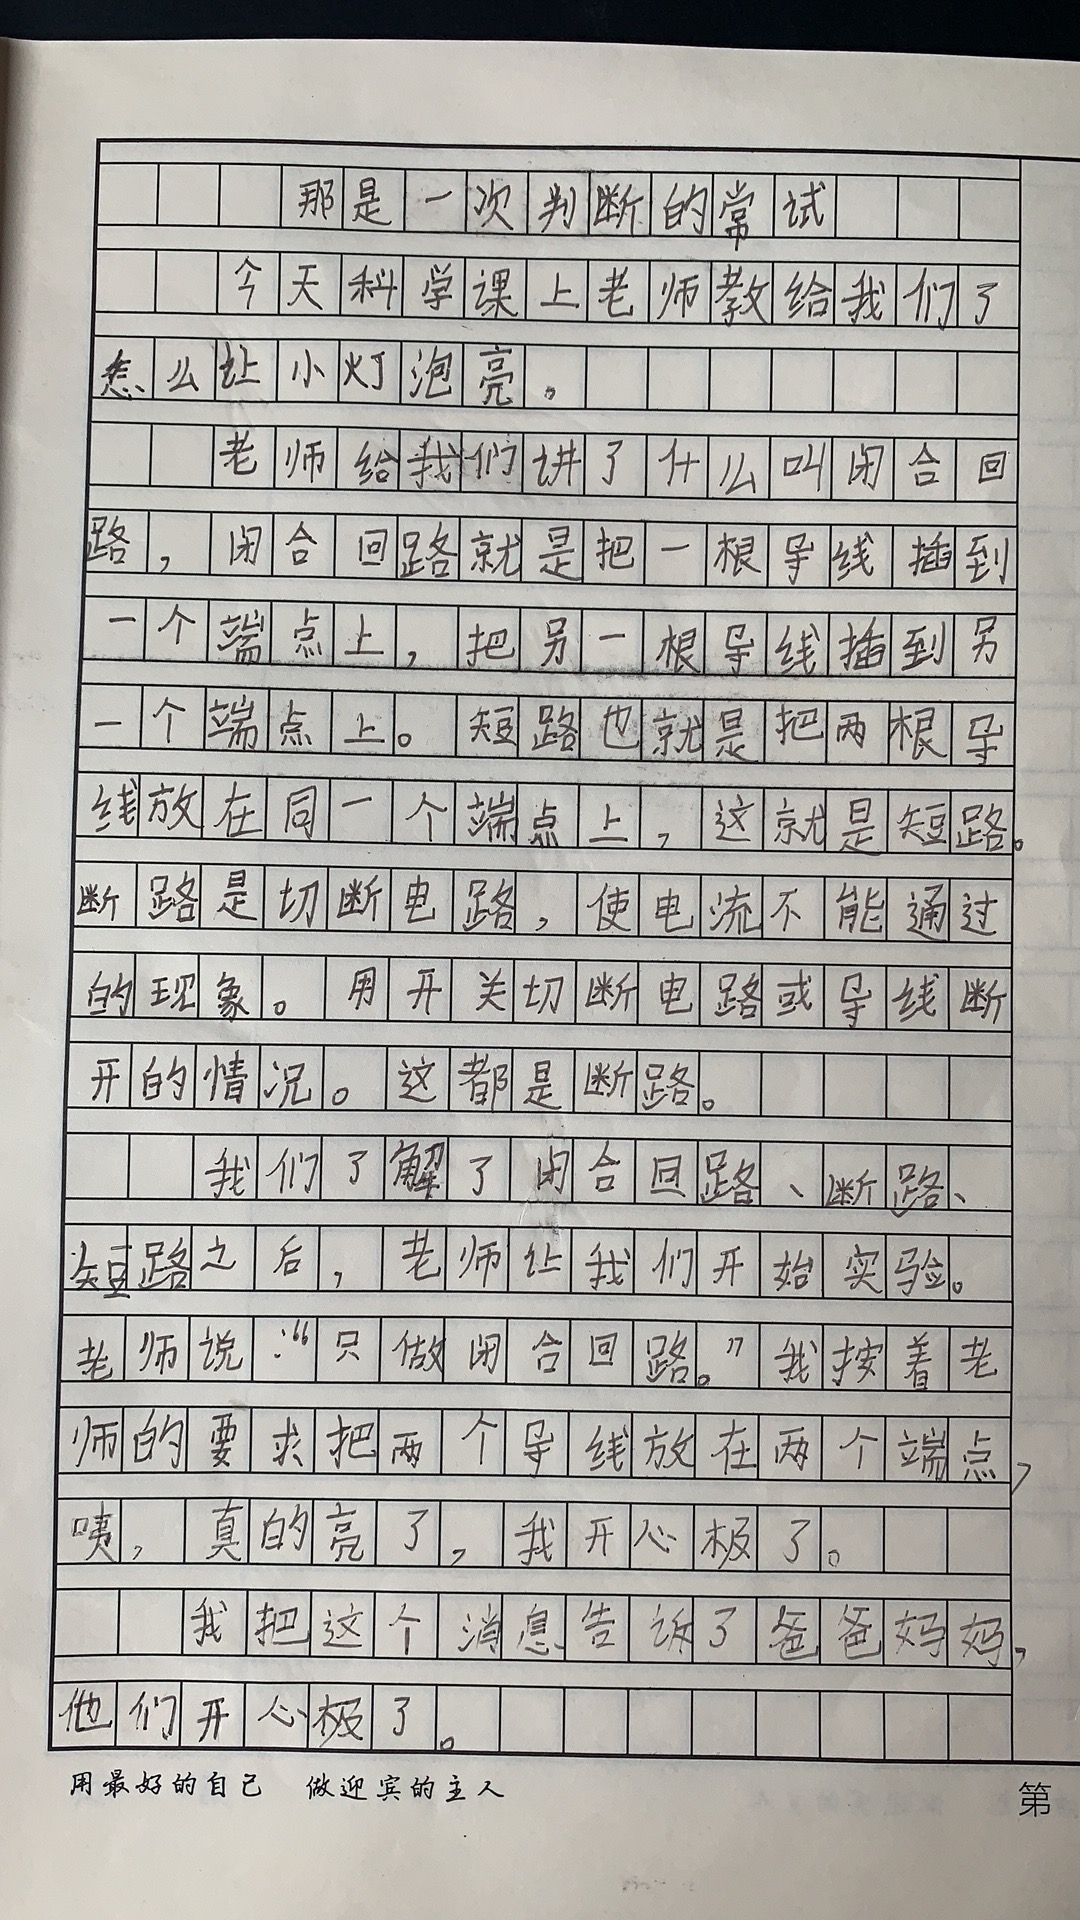 那是一次判断的常试
今天科学课上老师教给我们了
怎么让小灯泡亮。
老师给我们讲了什么叫闭合回
路，闭合回路就是把一根导线插到
一个端点上，把另一根导线插到另
一个端点上。短路也就是把两根导
线放在同一个端点上，这就是短路。
断路是切断电路，使电流不能通过
的现象。用开关切断电路或导线断
开的情况。这都是断路。
我们了解了闭合回路、断路、
短路之后，老师让我们开始实验。
老师说：“只做闭合回路。”我按着老
师的要求把两个导线放在两个端点，
咦，真的亮了，我开心极了。
我把这个消息告诉了爸爸妈妈，
他们开心极了。
用最好的自己 做迎宾的主人
第